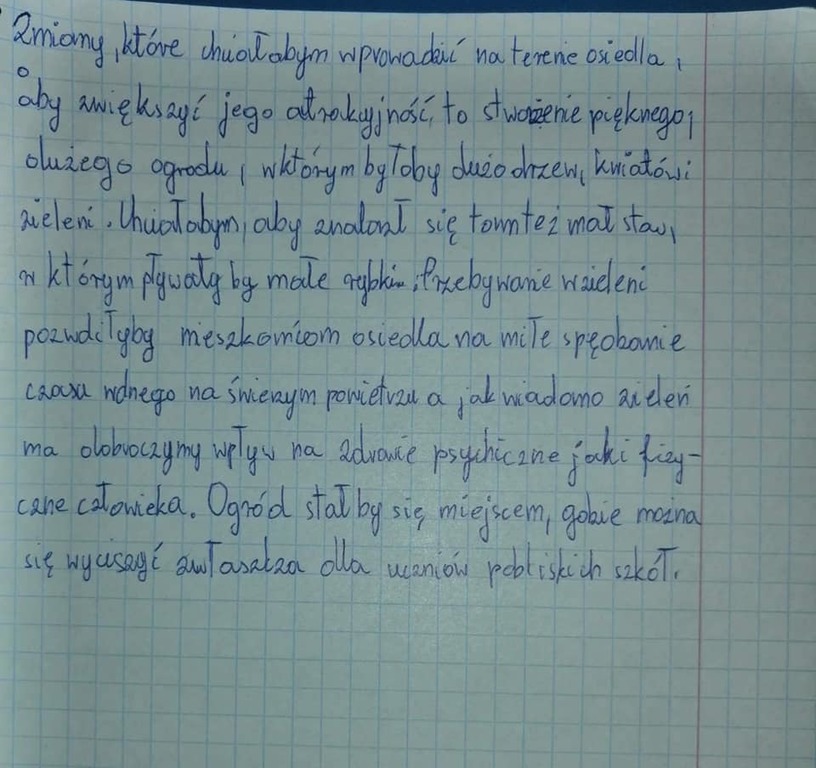 Zmiany, które chciałabym wprowadzić na terenie osiedla,
aby zwiększyć jego atrakcyjność, to stworzenie pięknego,
dużego ogrodu, w którym byłoby dużo drzew, kwiatów i
zieleni. Chciałabym, aby znalazł się tam też mał staw,
w którym pływały by małe rybki. Przebywanie w zieleni
pozwoliłyby mieszkańcom osiedla na miłe spędzanie
czasu wolnego na świeżym powietrzu a jak wiadomo zieleń
ma dobroczynny wpływ na zdrowie psychiczne jak i fizy-
czne człowieka. Ogród stał by się miejscem, gdzie można
się wyciszyć zwłaszcza dla uczniów pobliskich szkół.